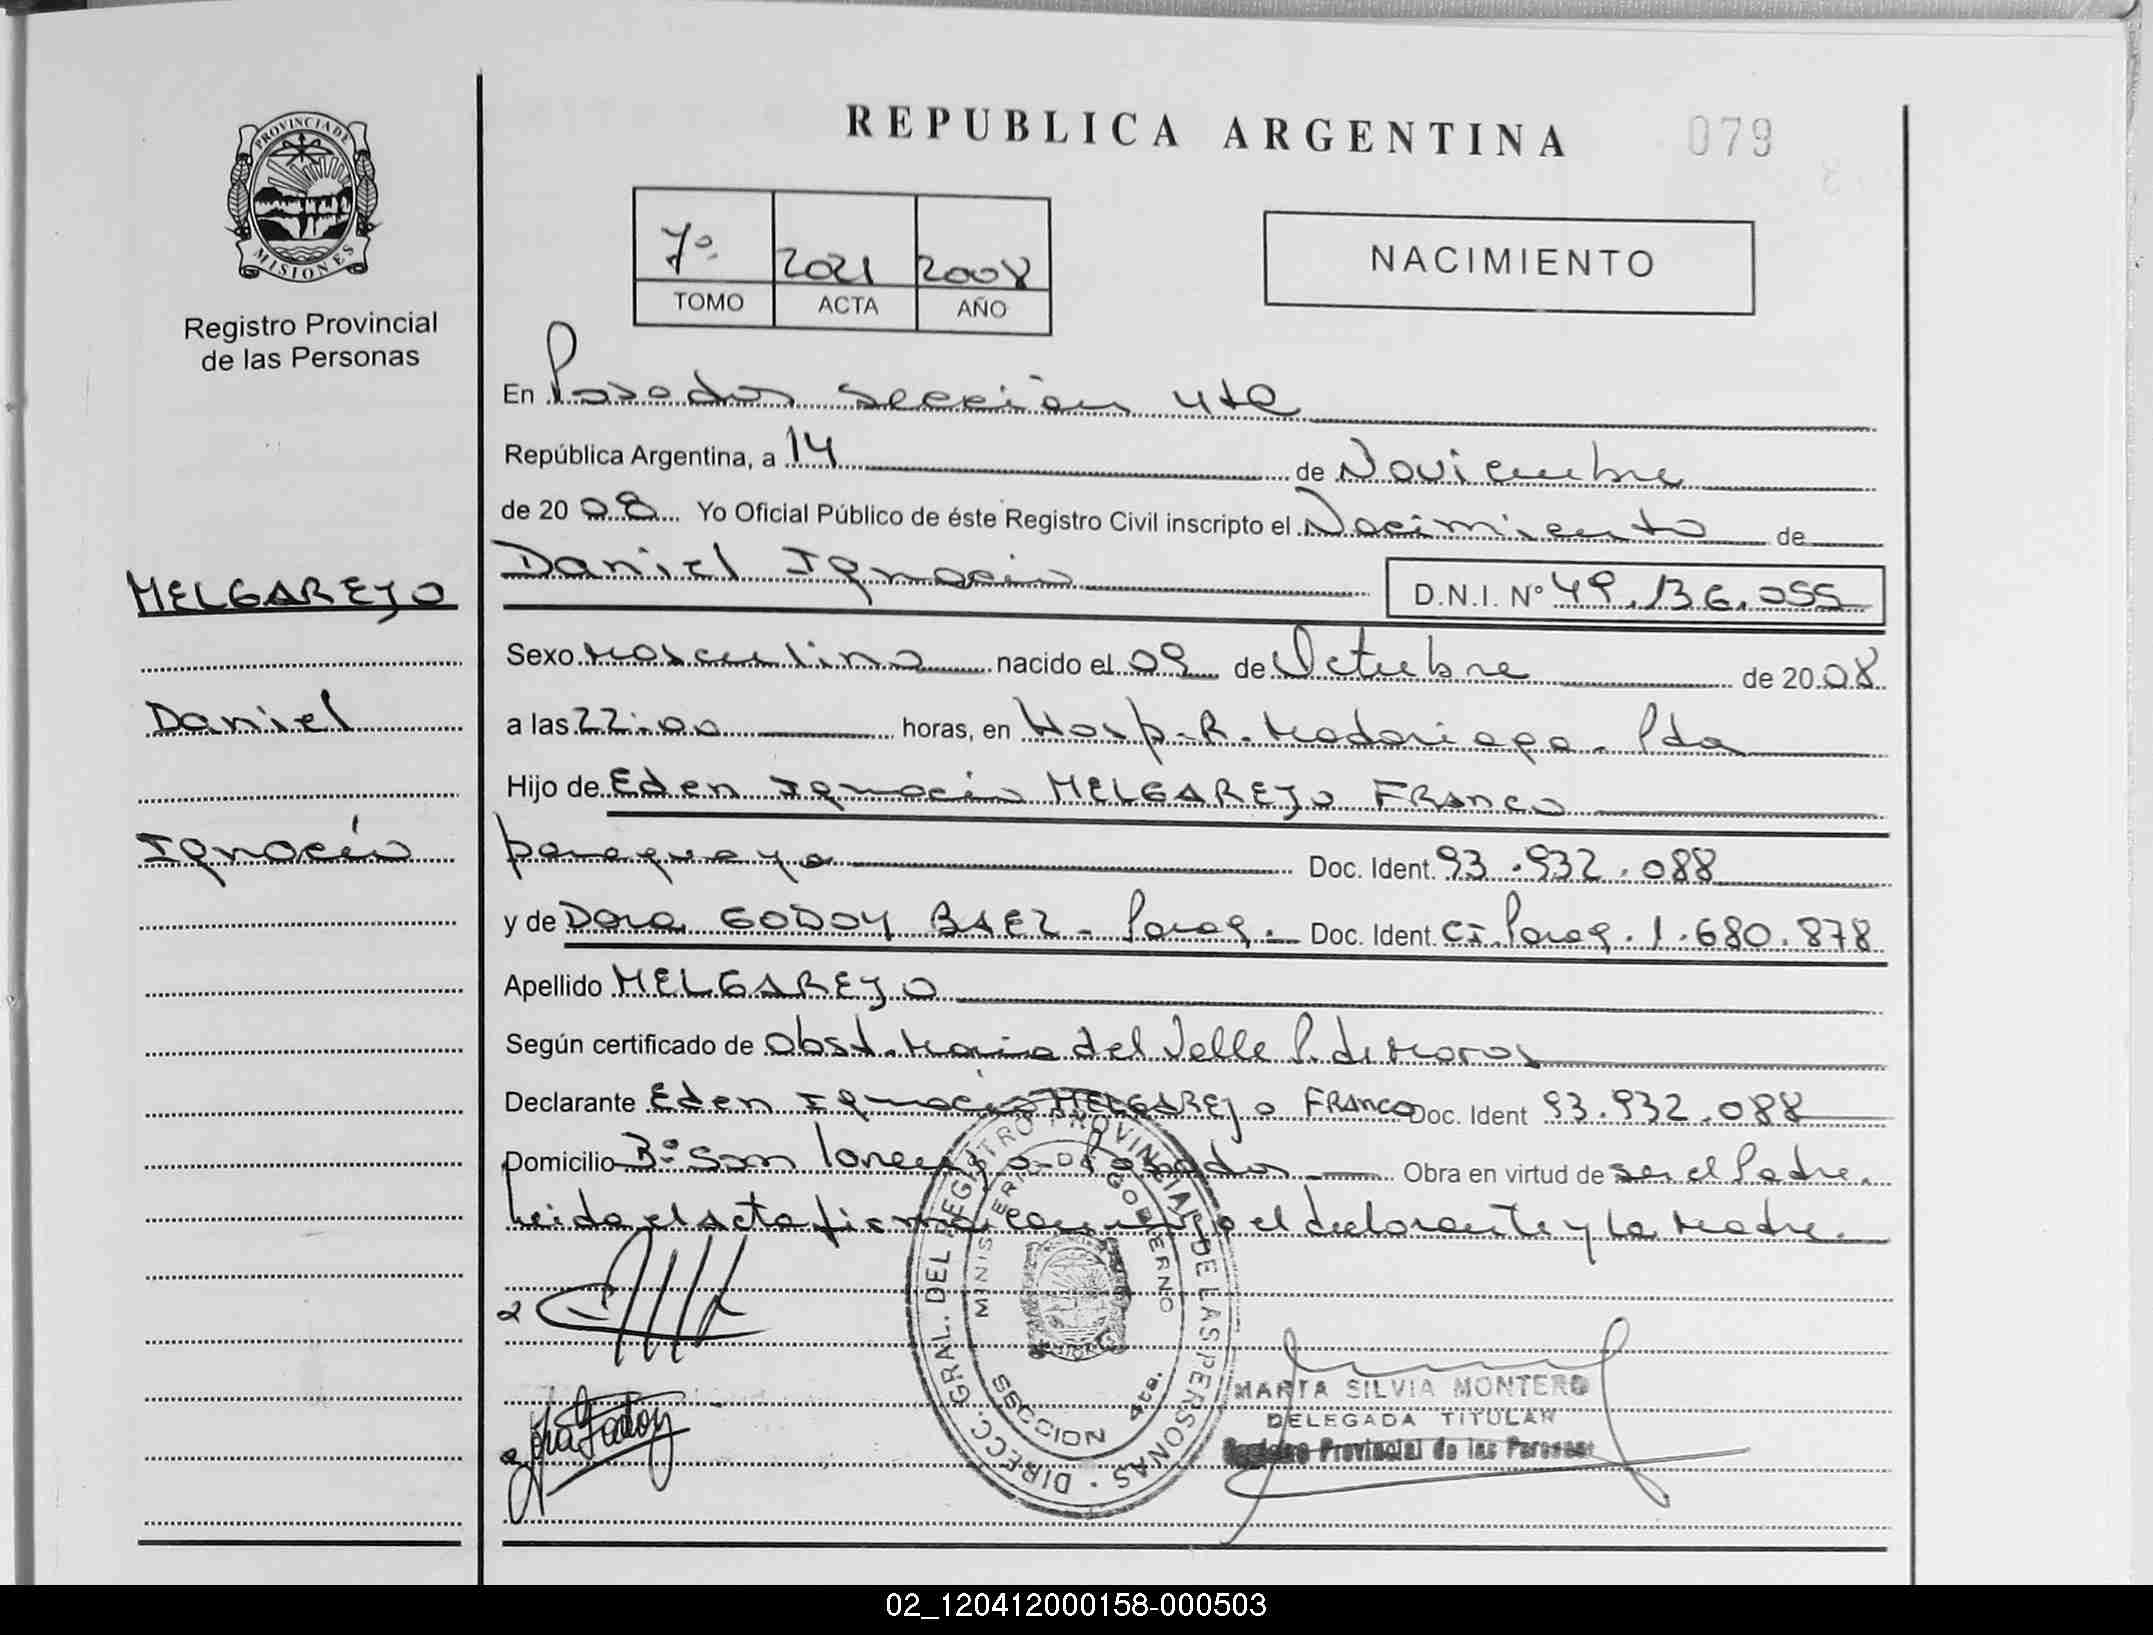 REPUBLICA ARGENTINA
079
PROVINCIA DE
MISIONES
Registro Provincial
de las Personas
7º 2021 2008
TOMO ACTA AÑO
NACIMIENTO
En Posadas sección 4ta
República Argentina, a 14 de Noviembre
de 2008 Yo Oficial Público de éste Registro Civil inscripto el Nacimiento de
Daniel Ignacio D.N.I. Nº 49.136.055
MELGAREJO
Daniel
Ignacio
Sexo Masculino nacido el 09 de Octubre de 2008
a las 22:00 horas, en Hosp. R. Madariaga - Pdas
Hijo de Eden Ignacio MELGAREJO FRANCO
paraguayo Doc. Ident. 93.932.088
y de Dora GODOY BAEZ - Parag. - Doc. Ident. CI. Parag. 1.680.878
Apellido MELGAREJO
Según certificado de Obst. Maria del Valle P. de Moros
Declarante Eden Ignacio MELGAREJO FRANCO Doc. Ident 93.932.088
Domicilio Bº San Lorenzo - Posadas Obra en virtud de ser el Padre.
Leida el acta firma conmigo el declarante y la madre.
DIRECC. GRAL. DEL REGISTRO PROVINCIAL DE LAS PERSONAS
MINISTERIO DE GOBIERNO
SECCION 4ta.
MARTA SILVIA MONTERO
DELEGADA TITULAR
Registro Provincial de las Personas
02_120412000158-000503